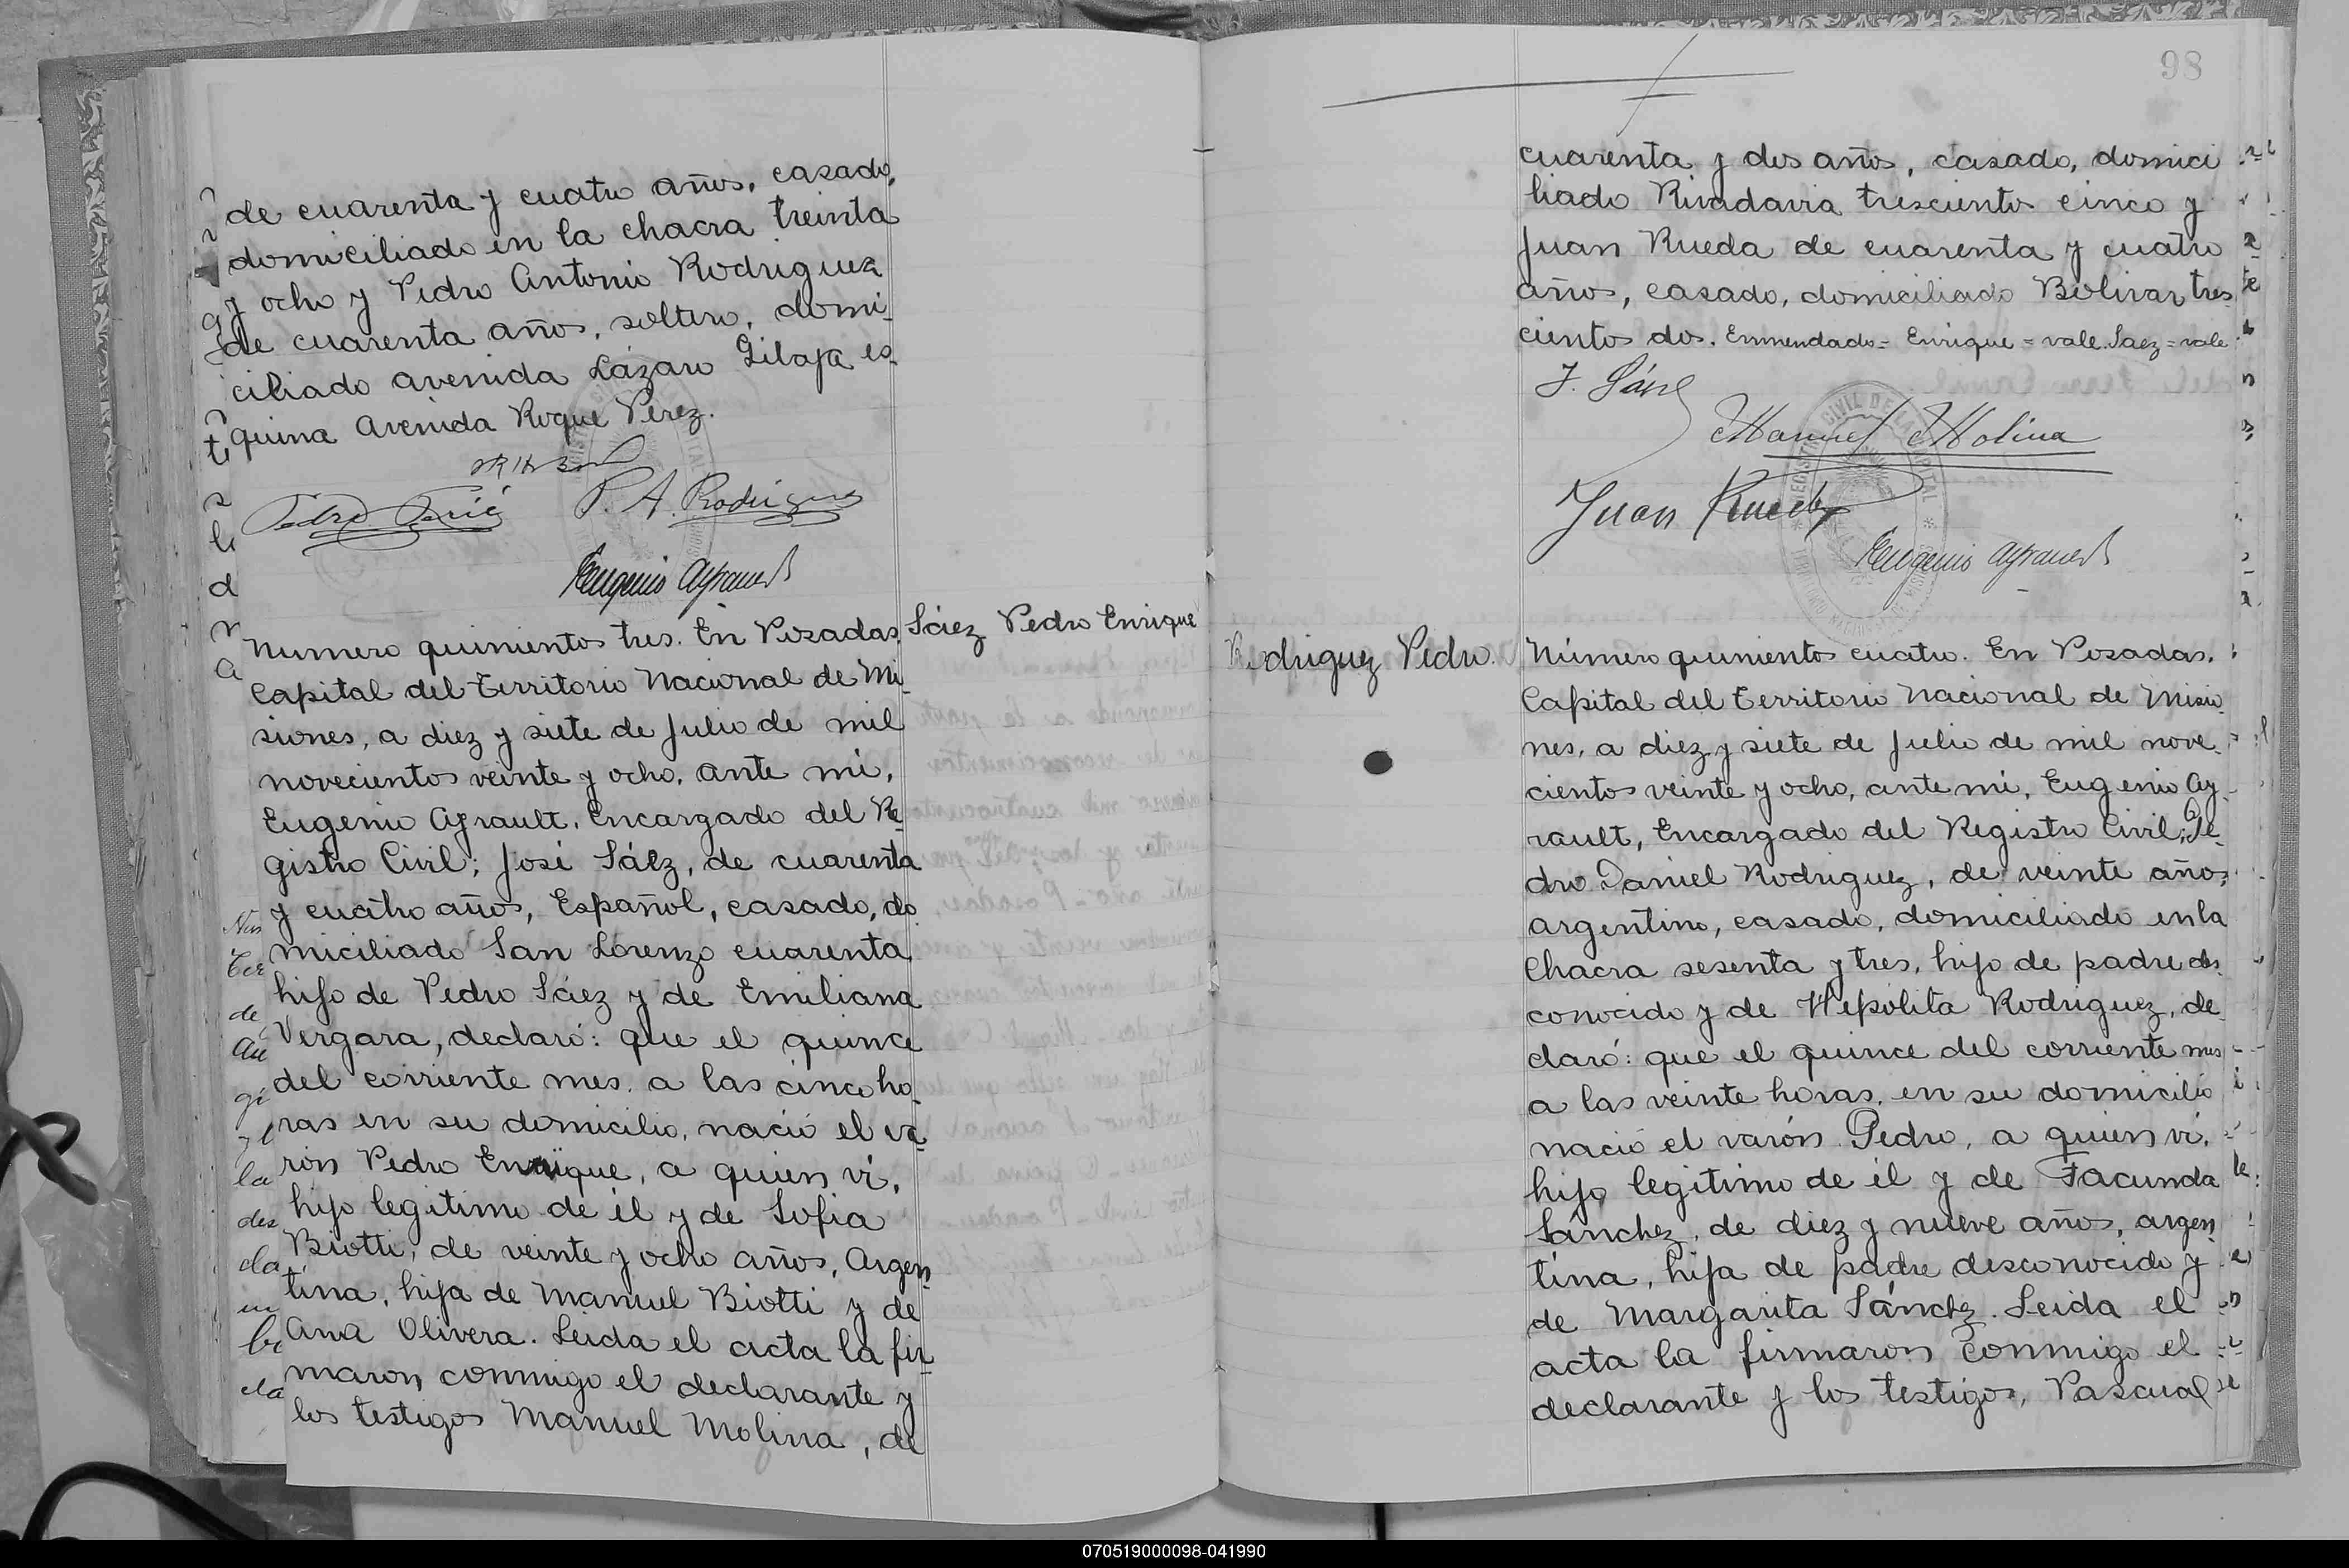 de cuarenta y cuatro años, casado,
domiciliado en la chacra treinta
y ocho y Pedro Antonio Rodriguez
de cuarenta años, soltero, domi-
ciliado avenida Lázaro Gibaja es-
quina Avenida Roque Perez.
P. A. Rodriguez
Eugenio Ayrault
Sáez Pedro Enrique
Numero quinientos tres. En Posadas,
Capital del Territorio Nacional de Mi-
siones, a diez y siete de Julio de mil
novecientos veinte y ocho, ante mi,
Eugenio Ayrault, Encargado del Re-
gistro Civil; José Sáez, de cuarenta
y cuatro años, Español, casado, do
miciliado San Lorenzo cuarenta
hijo de Pedro Sáez y de Emiliana
Vergara, declaró: que el quince
del corriente mes, a las cinco ho-
ras en su domicilio, nació el va-
rón Pedro Enrique, a quien vi,
hijo legitimo de él y de Sofia
Biotti, de veinte y ocho años, Argen-
tina, hija de Manuel Biotti y de
Ana Olivera. Leida el acta la fir-
maron conmigo el declarante y
los testigos Manuel Molina, de
98
cuarenta y dos años, casado, domici
liado Rivadavia trescientos cinco y
Juan Rueda de cuarenta y cuatro
años, casado, domiciliado Bolivar tres
cientos dos. Enmendado= Enrique = vale. Saez = vale
J. Sáez
Manuel Molina
Juan Rueda
Eugenio Ayrault
Rodriguez Pedro.
Número quinientos cuatro. En Posadas,
Capital del Territorio Nacional de Misio-
nes, a diez y siete de Julio de mil nove-
cientos veinte y ocho, ante mi, Eugenio Ay-
rault, Encargado del Registro Civil; Pe-
dro Daniel Rodriguez, de veinte años,
argentino, casado, domiciliado en la
Chacra sesenta y tres, hijo de padre des-
conocido y de Hipolita Rodriguez, de-
claró: que el quince del corriente mes
a las veinte horas, en su domicilio
nació el varón Pedro, a quien vi,
hijo legitimo de él y de Facunda
Sánchez, de diez y nueve años, argen
tina, hija de padre desconocido y
de Margarita Sánchez. Leida el
acta la firmaron conmigo el
declarante y los testigos, Pascual
070519000098-041990